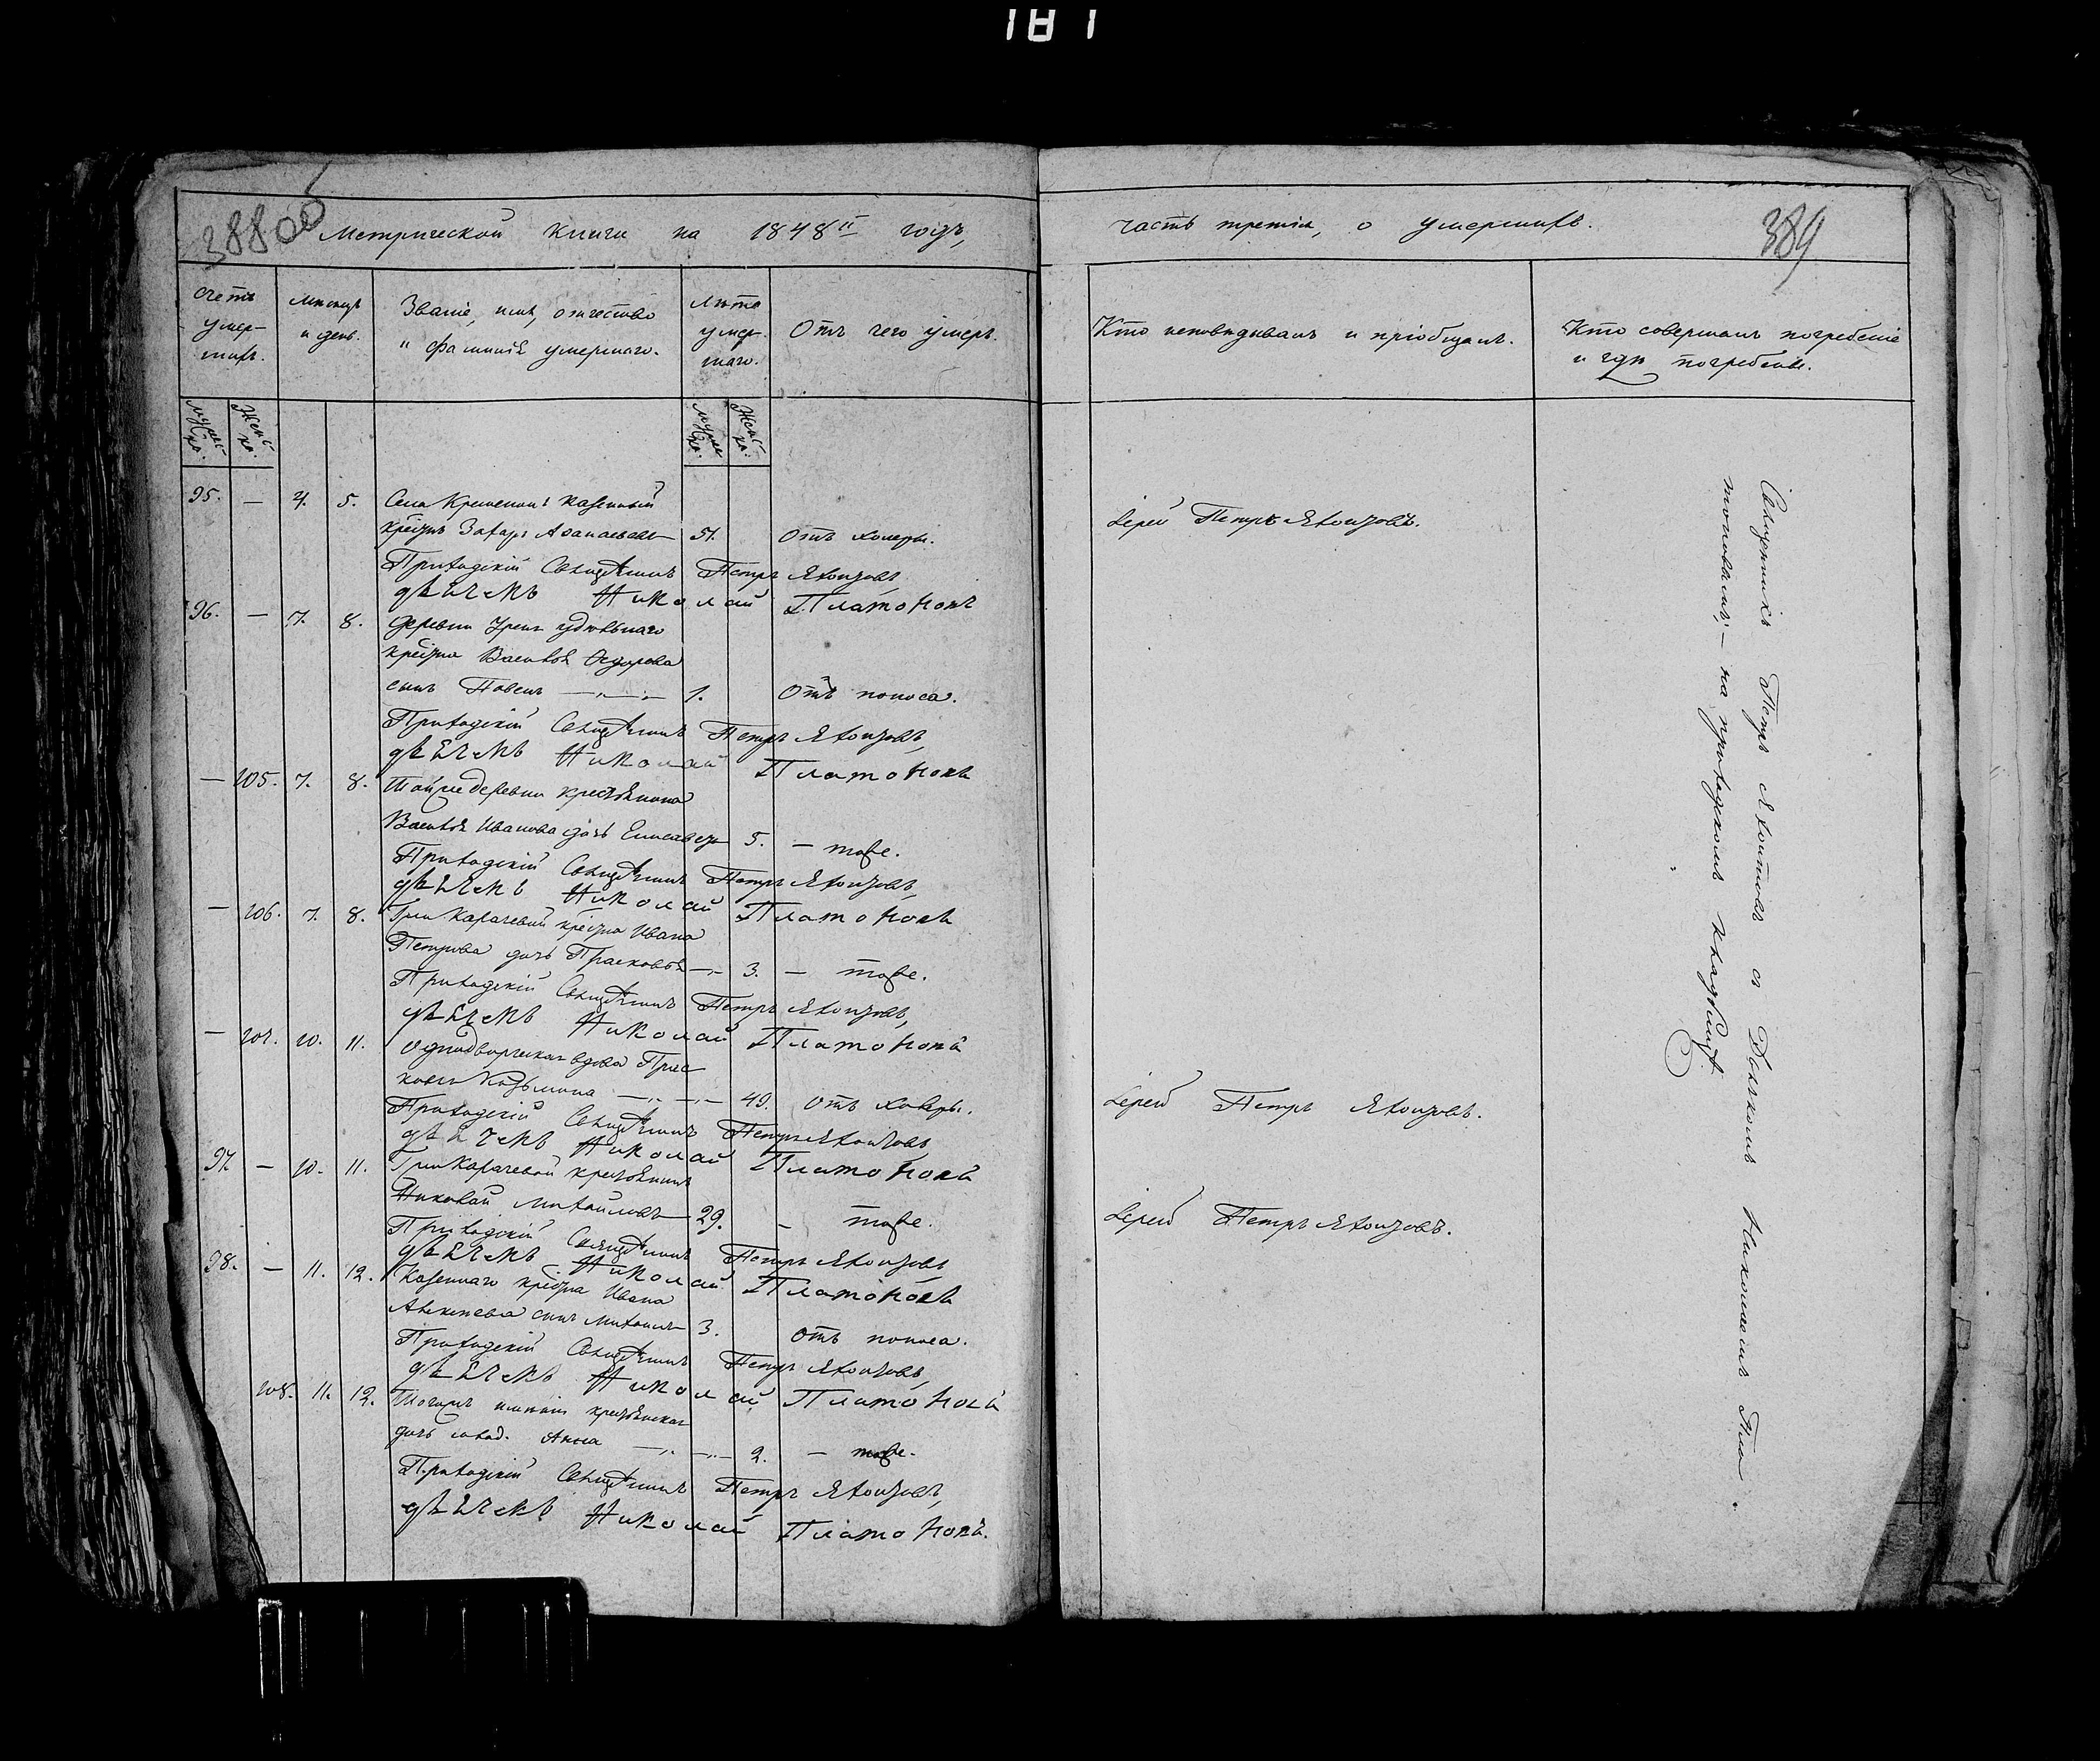 181
388 об
389
Метрической книги на 1848й годъ,
часть третія, о умершихъ.
Счетъ умер-шихъ.
Мѣсяцъ и день.
Званіе, имя, отчество и фамилія умершаго.
Лѣта умер-шаго.
Отъ чего умеръ.
Кто исповѣдывалъ и пріобщалъ.
Кто совершалъ погребеніе и гдѣ погребены.
мужес-ка.
Женс-ка.
мужес-ка.
Женс-ка.
95. — 4. 5. Села казенный
крестнъ Захаръ 51. Отъ холеры.
Іерей Петръ
Приходскій Священникъ Петръ
дьячекъ Николай Платоновъ
96. — 7. 8. Деревни удѣльнаго
крестна Василья Ѳедорова
сынъ Павелъ —„—„— 1. Отъ поноса.
Приходскій Священникъ Петръ
дьячекъ Николай Платоновъ
— 105. 7. 8. Той же деревни крестьянина
Василья Иванова дочь Елисавета 5. — тоже.
Приходскій Священникъ Петръ
дьячекъ Николай Платоновъ
— 106. 7. 8. крестна Ивана
Петрова дочь Прасковья —„— 3. — тоже.
Приходскій Священникъ Петръ
дьячекъ Николай Платоновъ
— 107. 10. 11. Однодворческая вдова Прас-
ковья Козьмина —„— —„— 49. Отъ холеры.
Іерей Петръ
Приходскій Священникъ Петръ
дьячекъ Николай Платоновъ
97. — 10. 11. крестьянинъ
Николай Михайловъ — 29. — тоже.
Іерей Петръ
Приходскій Священникъ Петръ
дьячекъ Николай Платоновъ
98. — 11. 12. Казеннаго крестна Ивана
Алексѣева сынъ Михаилъ 3. Отъ поноса.
Приходскій Священникъ Петръ
дьячекъ Николай Платоновъ
108. 11. 12. крестьянская
дочь Анна —„— —„— 2. — тоже.
Приходскій Священникъ Петръ
дьячекъ Николай Платоновъ.
Священникъ Петръ съ Дьячкомъ Николаемъ Пла-
тоновымъ, — на приходскомъ кладбищѣ